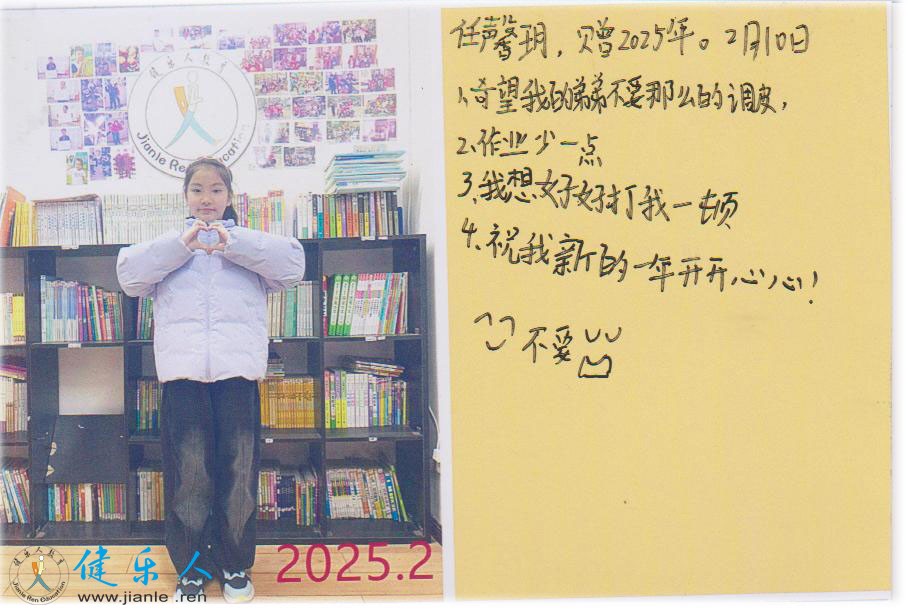 健乐人教育
Jianle Ren Education
健乐人教育
Jianle Ren Education
健乐人
www.jianle .ren
2025.2
任馨玥，贝曾2025年。2月10日
1、希望我的弟弟不要那么的调皮，
2、作业少一点
3、我想好好打我一顿
4、祝我新的一年开开心心！
不要